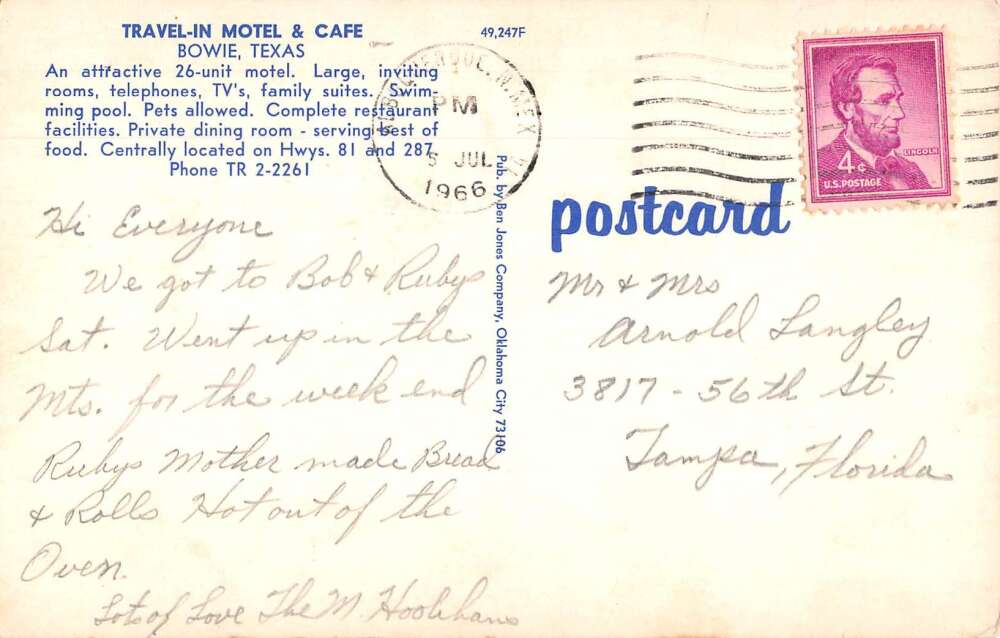 TRAVEL-IN MOTEL & CAFE
BOWIE, TEXAS
An attractive 26-unit motel. Large, inviting
rooms, telephones, TV's, family suites. Swim-
ming pool. Pets allowed. Complete restaurant
facilities. Private dining room - serving best of
food. Centrally located on Hwys. 81 and 287.
Phone TR 2-2261
49,247F
ALBUQUERQUE, N. MEX
PM
5 JUL
1966
4¢
LINCOLN
U.S. POSTAGE
Pub. by Ben Jones Company, Oklahoma City 73106
postcard
Hi Everyone
We got to Bob & Rubys
Sat. Went up in the
Mts. for the week end
Rubys Mother made Bread
& Rolls Hot out of the
Oven.
Lots of Love The M. Hoolihans
Mr & Mrs
Arnold Langley
3817 - 56th St.
Tampa, Florida